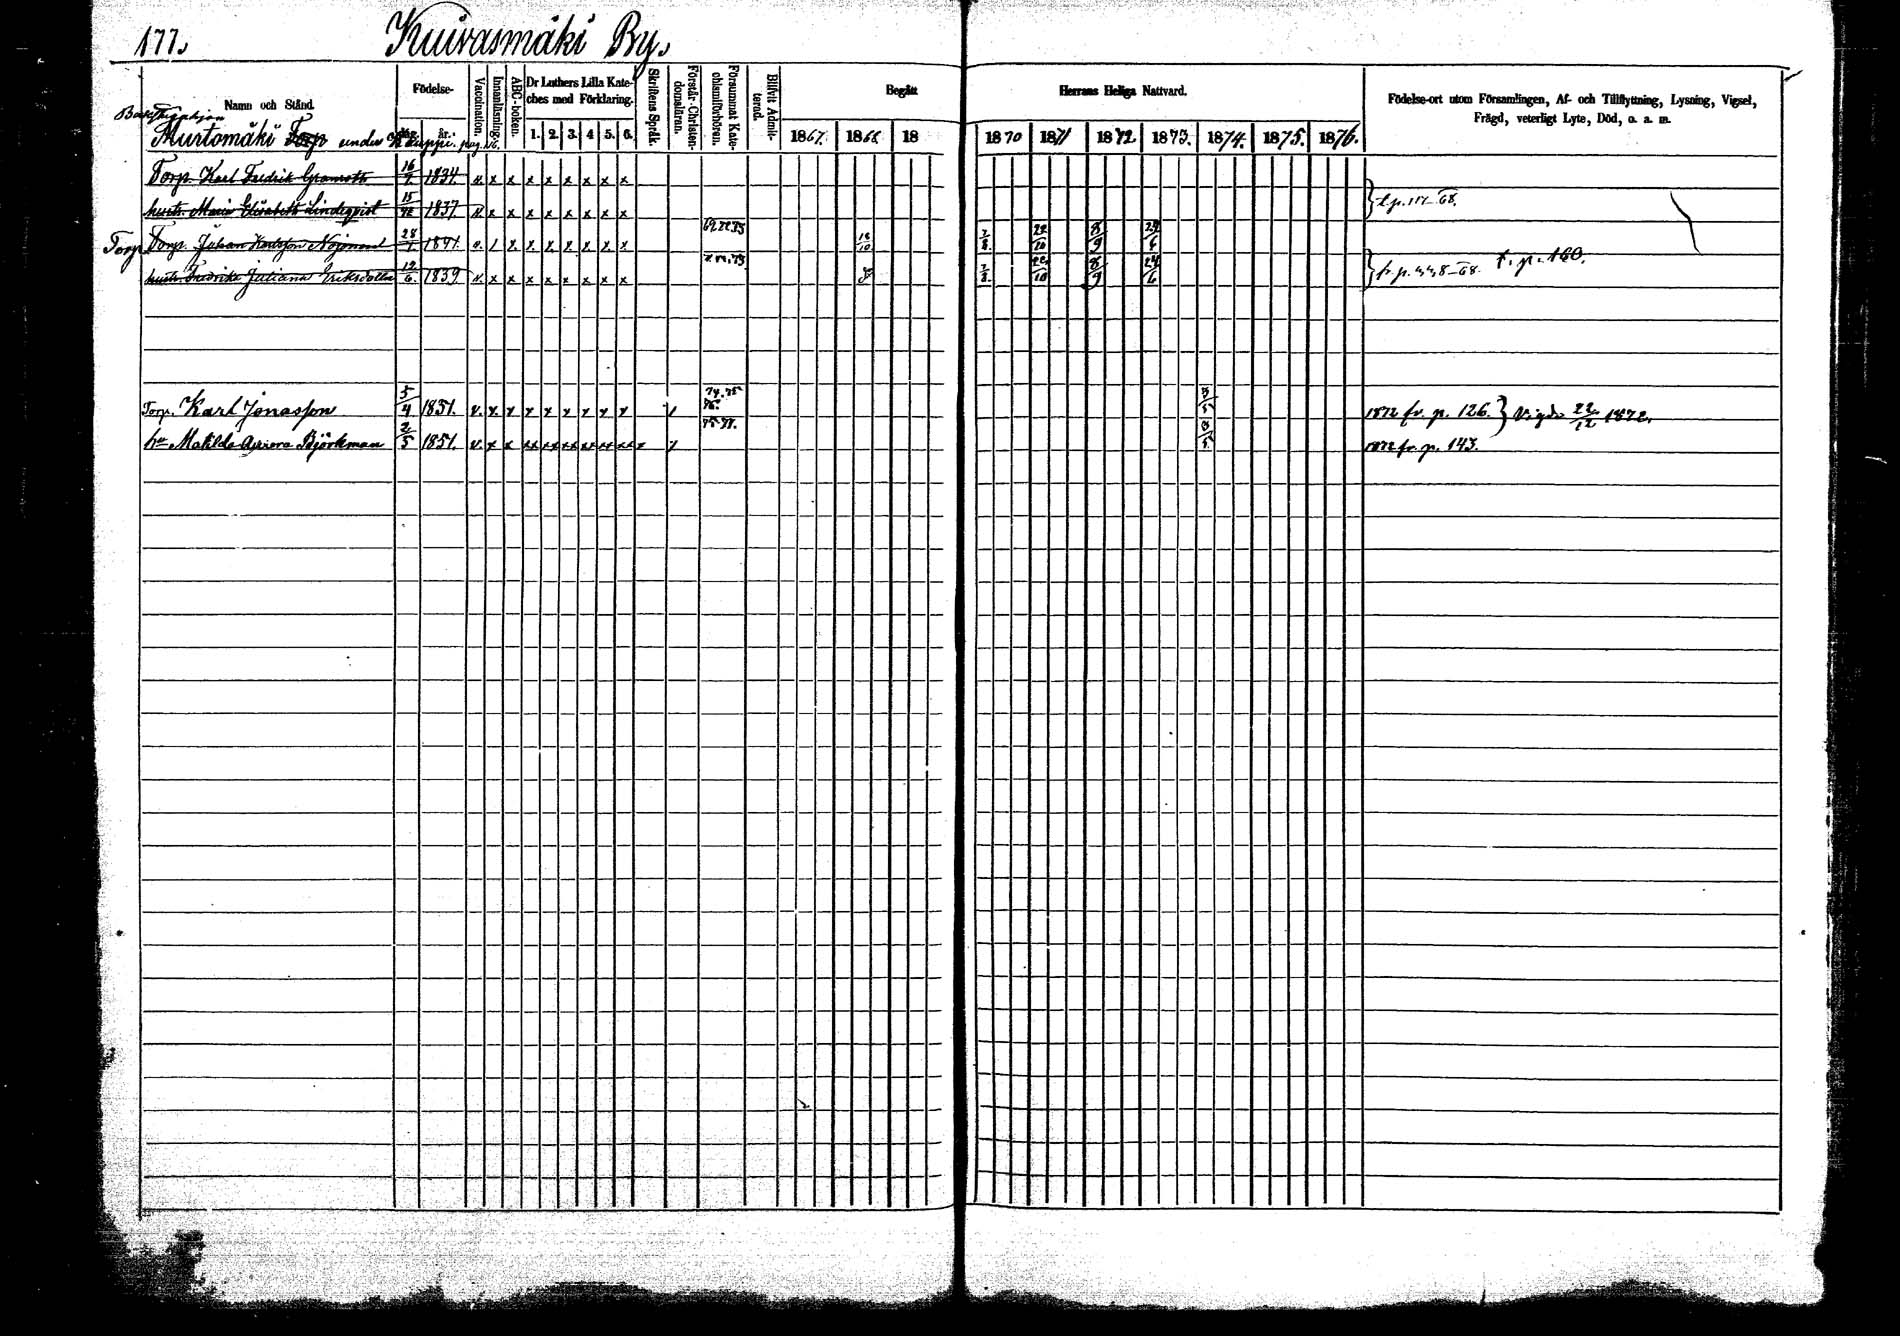 177. Kuivasmäki By.
Namn och Stånd.
Födelse-
år.
Vaccination.
Innanläsning.
ABC-boken.
Dr Luthers Lilla Kate-
ches med Förklaring.
1. 2. 3. 4 5. 6.
Skriftens Språk.
Förstår Christen-
domsläran.
Försummat Kate-
chismiförhören.
Blifvit Admit-
terad.
Begått Herrans Heliga Nattvard.
1867. 1868. 18 1870 1871 1872. 1873. 1874. 1875. 1876.
Födelse-ort utom Församlingen, Af- och Tillflyttning, Lysning, Vigsel,
Frägd, veterligt Lyte, Död, o. a. m.
Murtomäki Torp under
Torp. Karl Fredrik Granroth 16/7. 1834. v. x x x x x x x x
hustr. Maria Elisabeth Lindeqvist 1837. v. x x x x x x x x
t. p. 117-68.
Torp. Torp. Johan 28/1. 1841. v. / x x x x x x x 18/10 7/8. 22/10 8/9 24/6
hustr. Fredrika Juliana Eriksdotter 12/6. 1839. v. x x x x x x x x 7/8. 22/10 8/9 24/6
t. p. 160.
Torp. Karl Jonasson 5/4 1851. v. x x x x x x x x / 74. 75 76. 3/5 1872 fr. p. 126. Vigde 22/12 1872.
hu Matilda Aurora Björkman 2/5 1851. v. x x xx xx xx xx xx xx x / 3/5 1872 fr. p. 143.